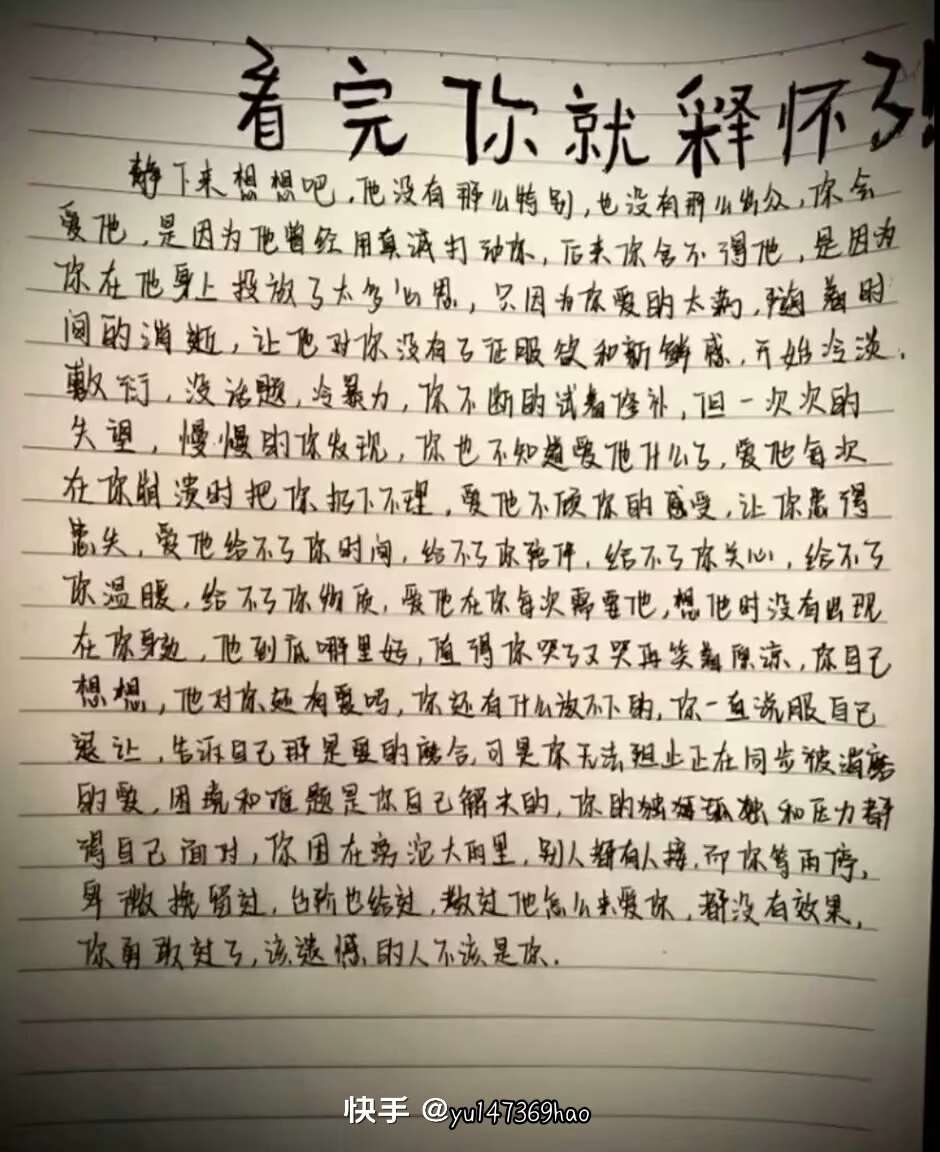 看完你就释怀了!
静下来想想吧，他没有那么特别，也没有那么出众，你会
爱他，是因为他曾经用真诚打动你，后来你舍不得他，是因为
你在他身上投放了太多心思，只因为你爱的太满，随着时
间的消逝，让他对你没有了征服欲和新鲜感，开始冷淡，
敷衍，没话题，冷暴力，你不断的试着修补，但一次次的
失望，慢慢的你发现，你也不知道爱他什么了，爱他每次
在你崩溃时把你扔下不理，爱他不顾你的感受，让你患得
患失，爱他给不了你时间，给不了你陪伴，给不了你关心，给不了
你温暖，给不了你物质，爱他在你每次需要他，想他时没有出现
在你身边，他到底哪里好，值得你哭了又哭再笑着原谅，你自己
想想，他对你还有爱吗，你还有什么放不下的，你一直说服自己
退让，告诉自己那是爱的磨合，可是你无法阻止正在同步被消磨
的爱，困境和难题是你自己解决的，你的孤独和压力都
得自己面对，你困在滂沱大雨里，别人都有人接，而你等雨停，
卑微挽留过，台阶也给过，教过他怎么来爱你，都没有效果，
你勇敢过了，该遗憾的人不该是你.
快手 @yu147369hao